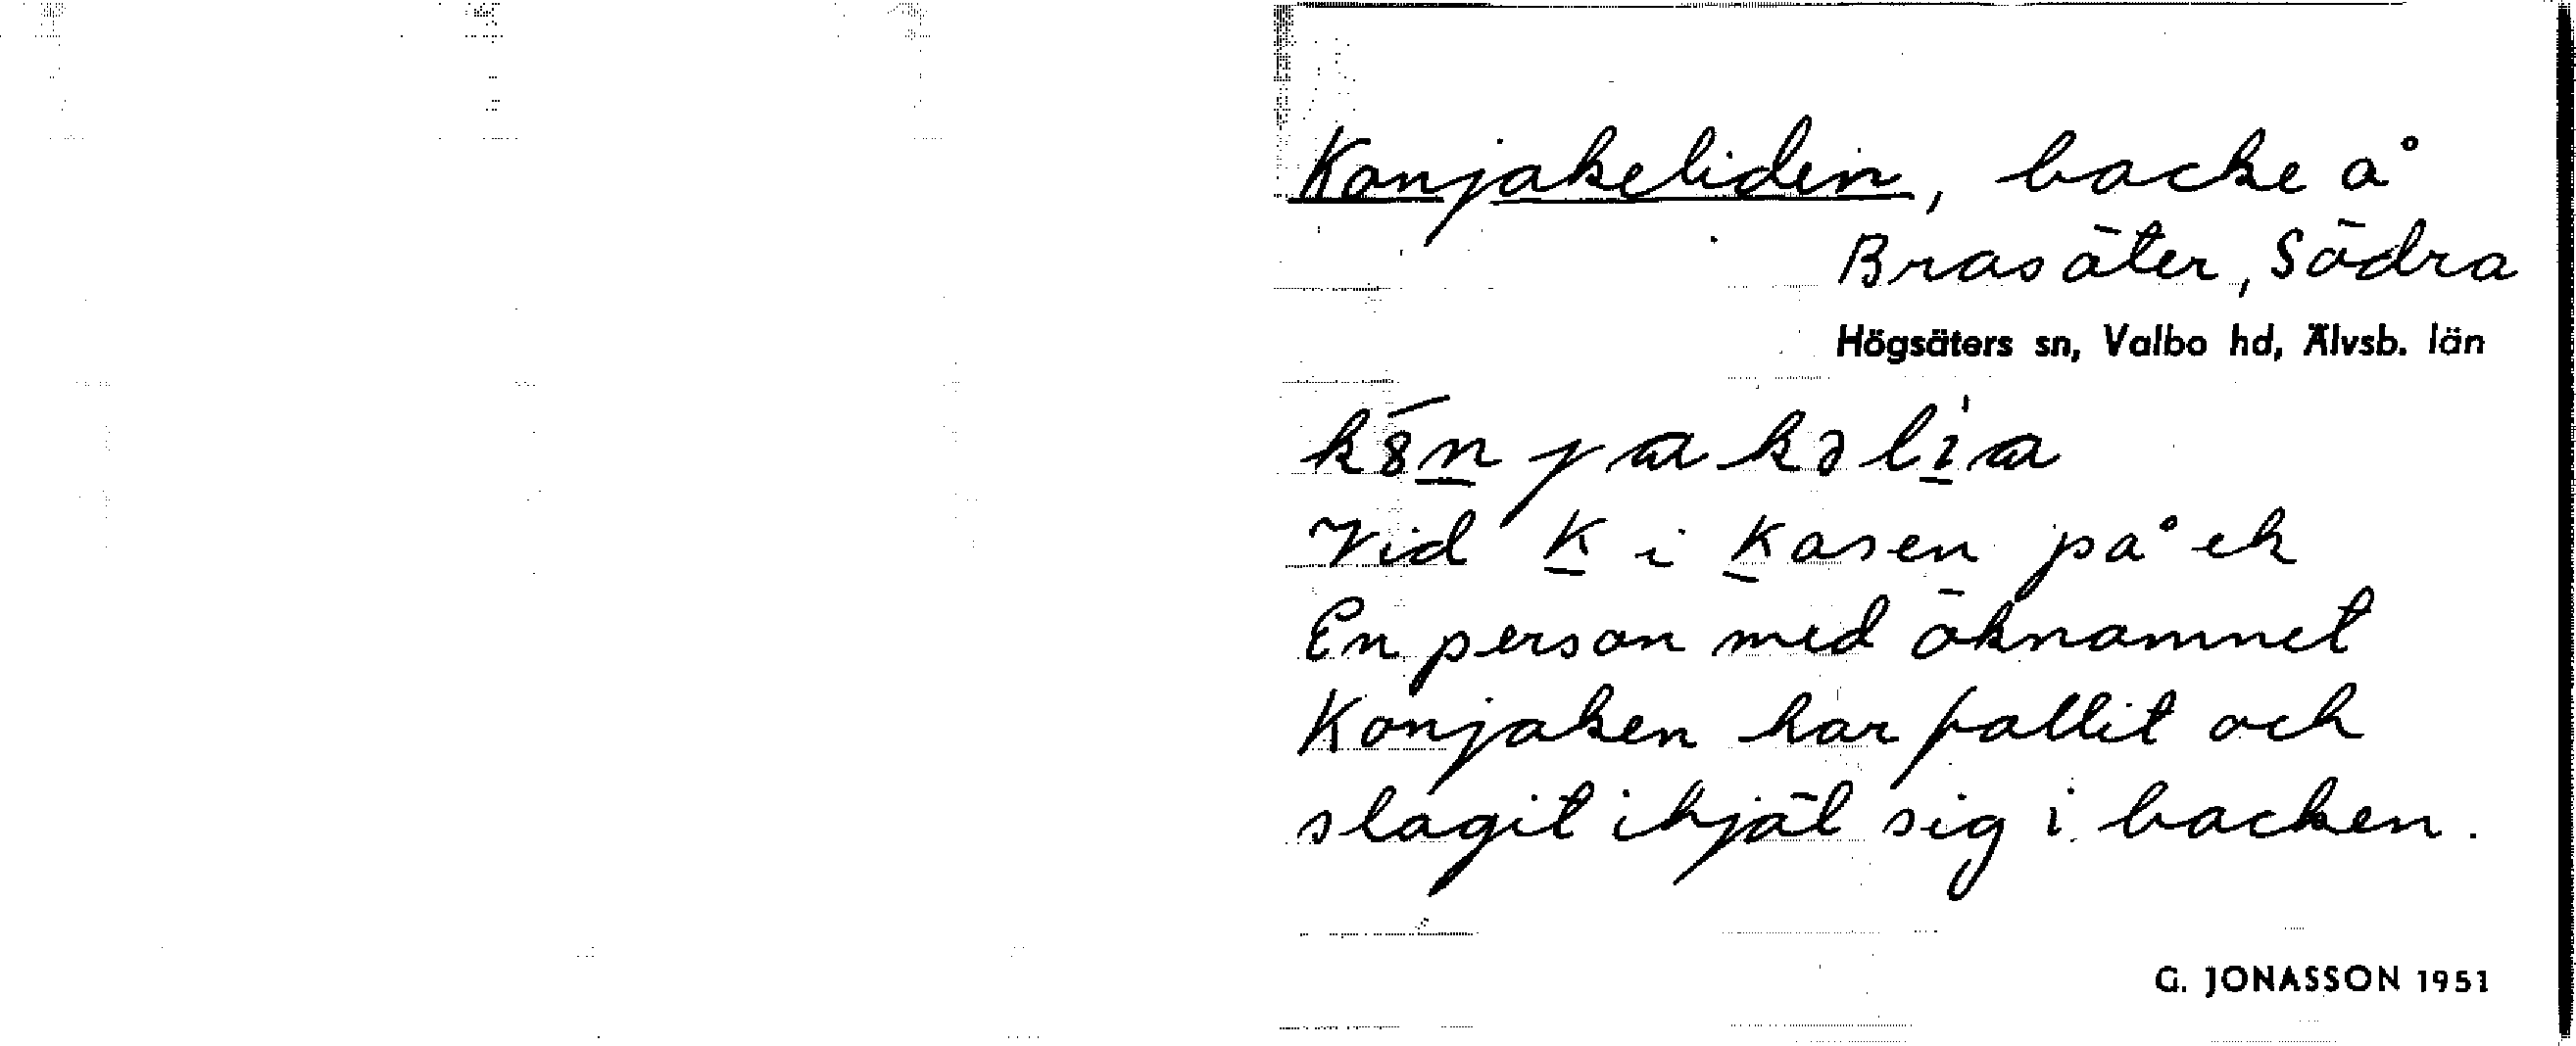 Konjakeliden, backe å
Brasäter, Södra
Högsäters sn, Valbo hd, Älvsb. län
Vid K i Kasen på ek
En person med öknamnet
Konjaken har fallit och
slagit ihjäl sig i backen.
G. JONASSON 1951